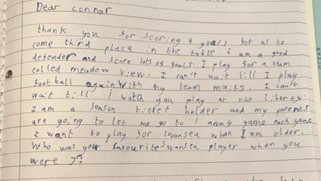 Dear connor
thank you for scoring 4 goals for us to
come third place in the table i am a good
defender and score lots of goals I play for a team
called meadow view. I can't wait till I play
football again with my team mates. i can't
wait till I watch you play at the liberty.
I am a season ticket holder and my parents
are going to let me go to 1 away game each year
i want to play for swansea when I am older.
Who was your favourite swansea player when you
were 7?